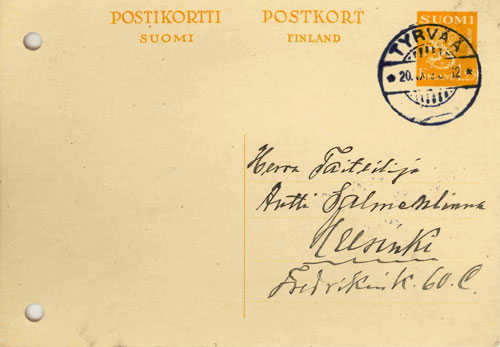 POSTIKORTTI POSTKORT
SUOMI FINLAND
SUOMI
TYRVÄÄ
20.
Herra Taiteilija
Antti Salmenlinna
Helsinki
Fredrikink. 60. C.